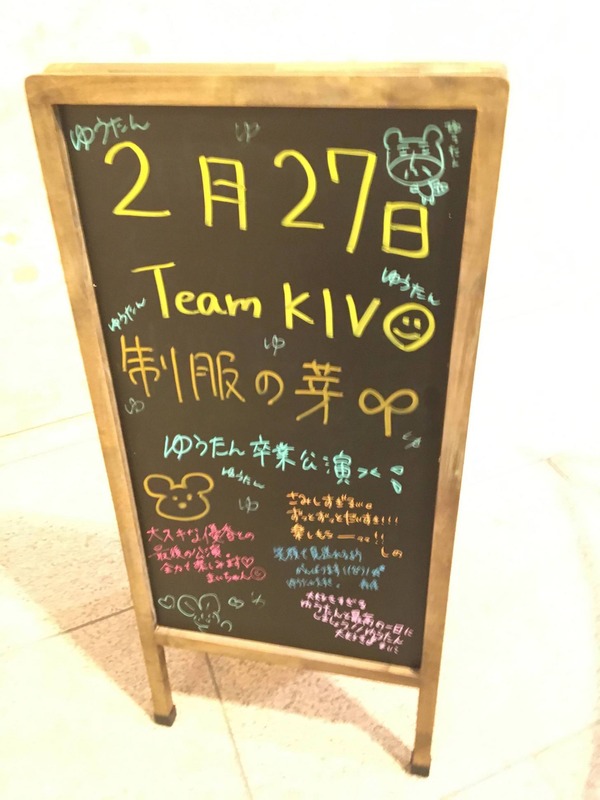 ゆうたん
ゆ
ゆうたん
2月27日
ゆうたん
Team KIV
ゆうたん
ゆ
制服の芽
ゆ
ゆうたん卒業公演><
ゆうたん
ゆ
大スキな優香との
最後の公演。
全力で楽しみます♡
まいちゃん
さみしすぎるぃ。
ずっとずっとだいすき!!!
楽しもうーっ!!
しの
笑顔で見送れるよう
がんばります
大好きすぎる
ゆうたんと最高の一日に
しましょう//ゆうたん
大好きよ